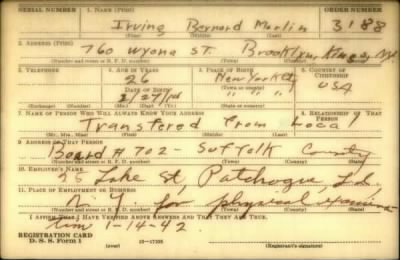 SERIAL NUMBER 1. NAME (Print)
Irving Bernard Marlin 3188
(First) (Middle) (Last)
2. ADDRESS (Print)
760 Wyona St. Brooklyn, Kings, N.Y.
(Number and street or R. F. D. number) (Town) (County) (State)
3. TELEPHONE 4. AGE IN YEARS 5. PLACE OF BIRTH 6. COUNTRY OF CITIZENSHIP
26 New York City
(Town or county)
DATE OF BIRTH " " " USA
(Exchange) (Number) (Mo.) (Day) (Yr.) (State or country)
7. NAME OF PERSON WHO WILL ALWAYS KNOW YOUR ADDRESS 8. RELATIONSHIP OF THAT PERSON
Transfered from Local
(Mr., Mrs., Miss) (First) (Middle) (Last)
9. ADDRESS OF THAT PERSON
Board # 702 - Suffolk County
(Number and street or R. F. D. number) (Town) (County) (State)
10. EMPLOYER'S NAME
25 Lake St, Patchogue L.I.,
11. PLACE OF EMPLOYMENT OR BUSINESS
N.Y. for physical examina-
(Number and street or R. F. D. number) (Town) (County) (State)
I AFFIRM THAT I HAVE VERIFIED ABOVE ANSWERS AND THAT THEY ARE TRUE.
tion 1-14-42.
REGISTRATION CARD
D. S. S. Form 1 (over) (Registrant's signature)